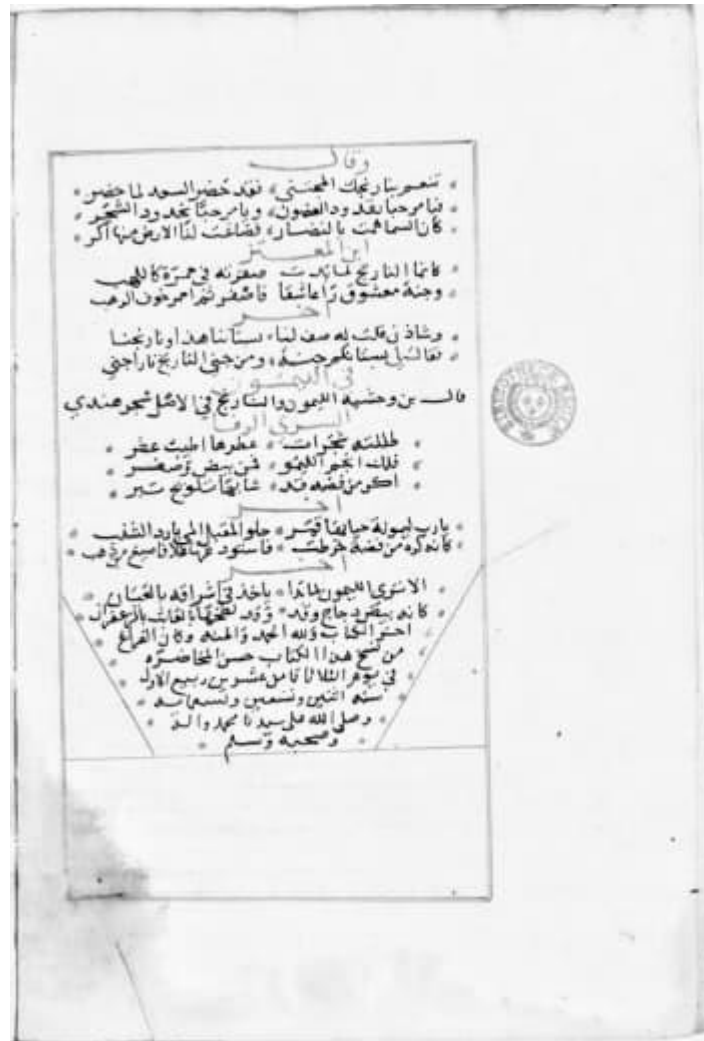 وقال
تنعم بنارنجك المجتنى فقد حضر السعد لما حضر
فيا مرحبا بقدود الغصون ويا مرحبا بخدود الشجر
كان السما همت بالنضار فصاغت لنا الارض منها اكر
ابن المعتز
كانما النارنج لما بدت صفرته في حمرة كاللهيب
وجنة معشوق راا عاشقا فاصفر ثم احمر خوف الرقيب
اخر
وشاذن قلت له صف لنا بستاننا هذا ونارنجنا
فقال لي بستانكم جنة ومن جنى النارنج نارا جنى
في الليمون
قال بن وحشيه الليمون والنارنج في الاصل شجر هندي
السرى الرفا
ظللته شجرات عطرها اطيب عطر
فلك انجم الليمو فمن بيض وصفر
اكر من فضه قد شابها تلويح تبر
اخر
يارب ليمونة حلو المقبل المى بارد الشنب
كانه كرة من فضة خرطت فاستودعوها غلافا صيغ من ذهب
اخر
الا ترى الليمون لما بدا ياخذ في اشراقه بالعيان
كانه بيض دجاج وقد بالزعفران
اخر الكتاب ولله الحمد والمنه وكان الفراغ
من نسخ هذا الكتاب حسن المحاضره
في يوم الثلاثا ثامن عشرين ربيع الاول
سنه اثنين وتسعين وتسعمايه
وصلى الله على سيدنا محمد واله
وصحبه وسلم
BIBLIOTHECAE REGIAE